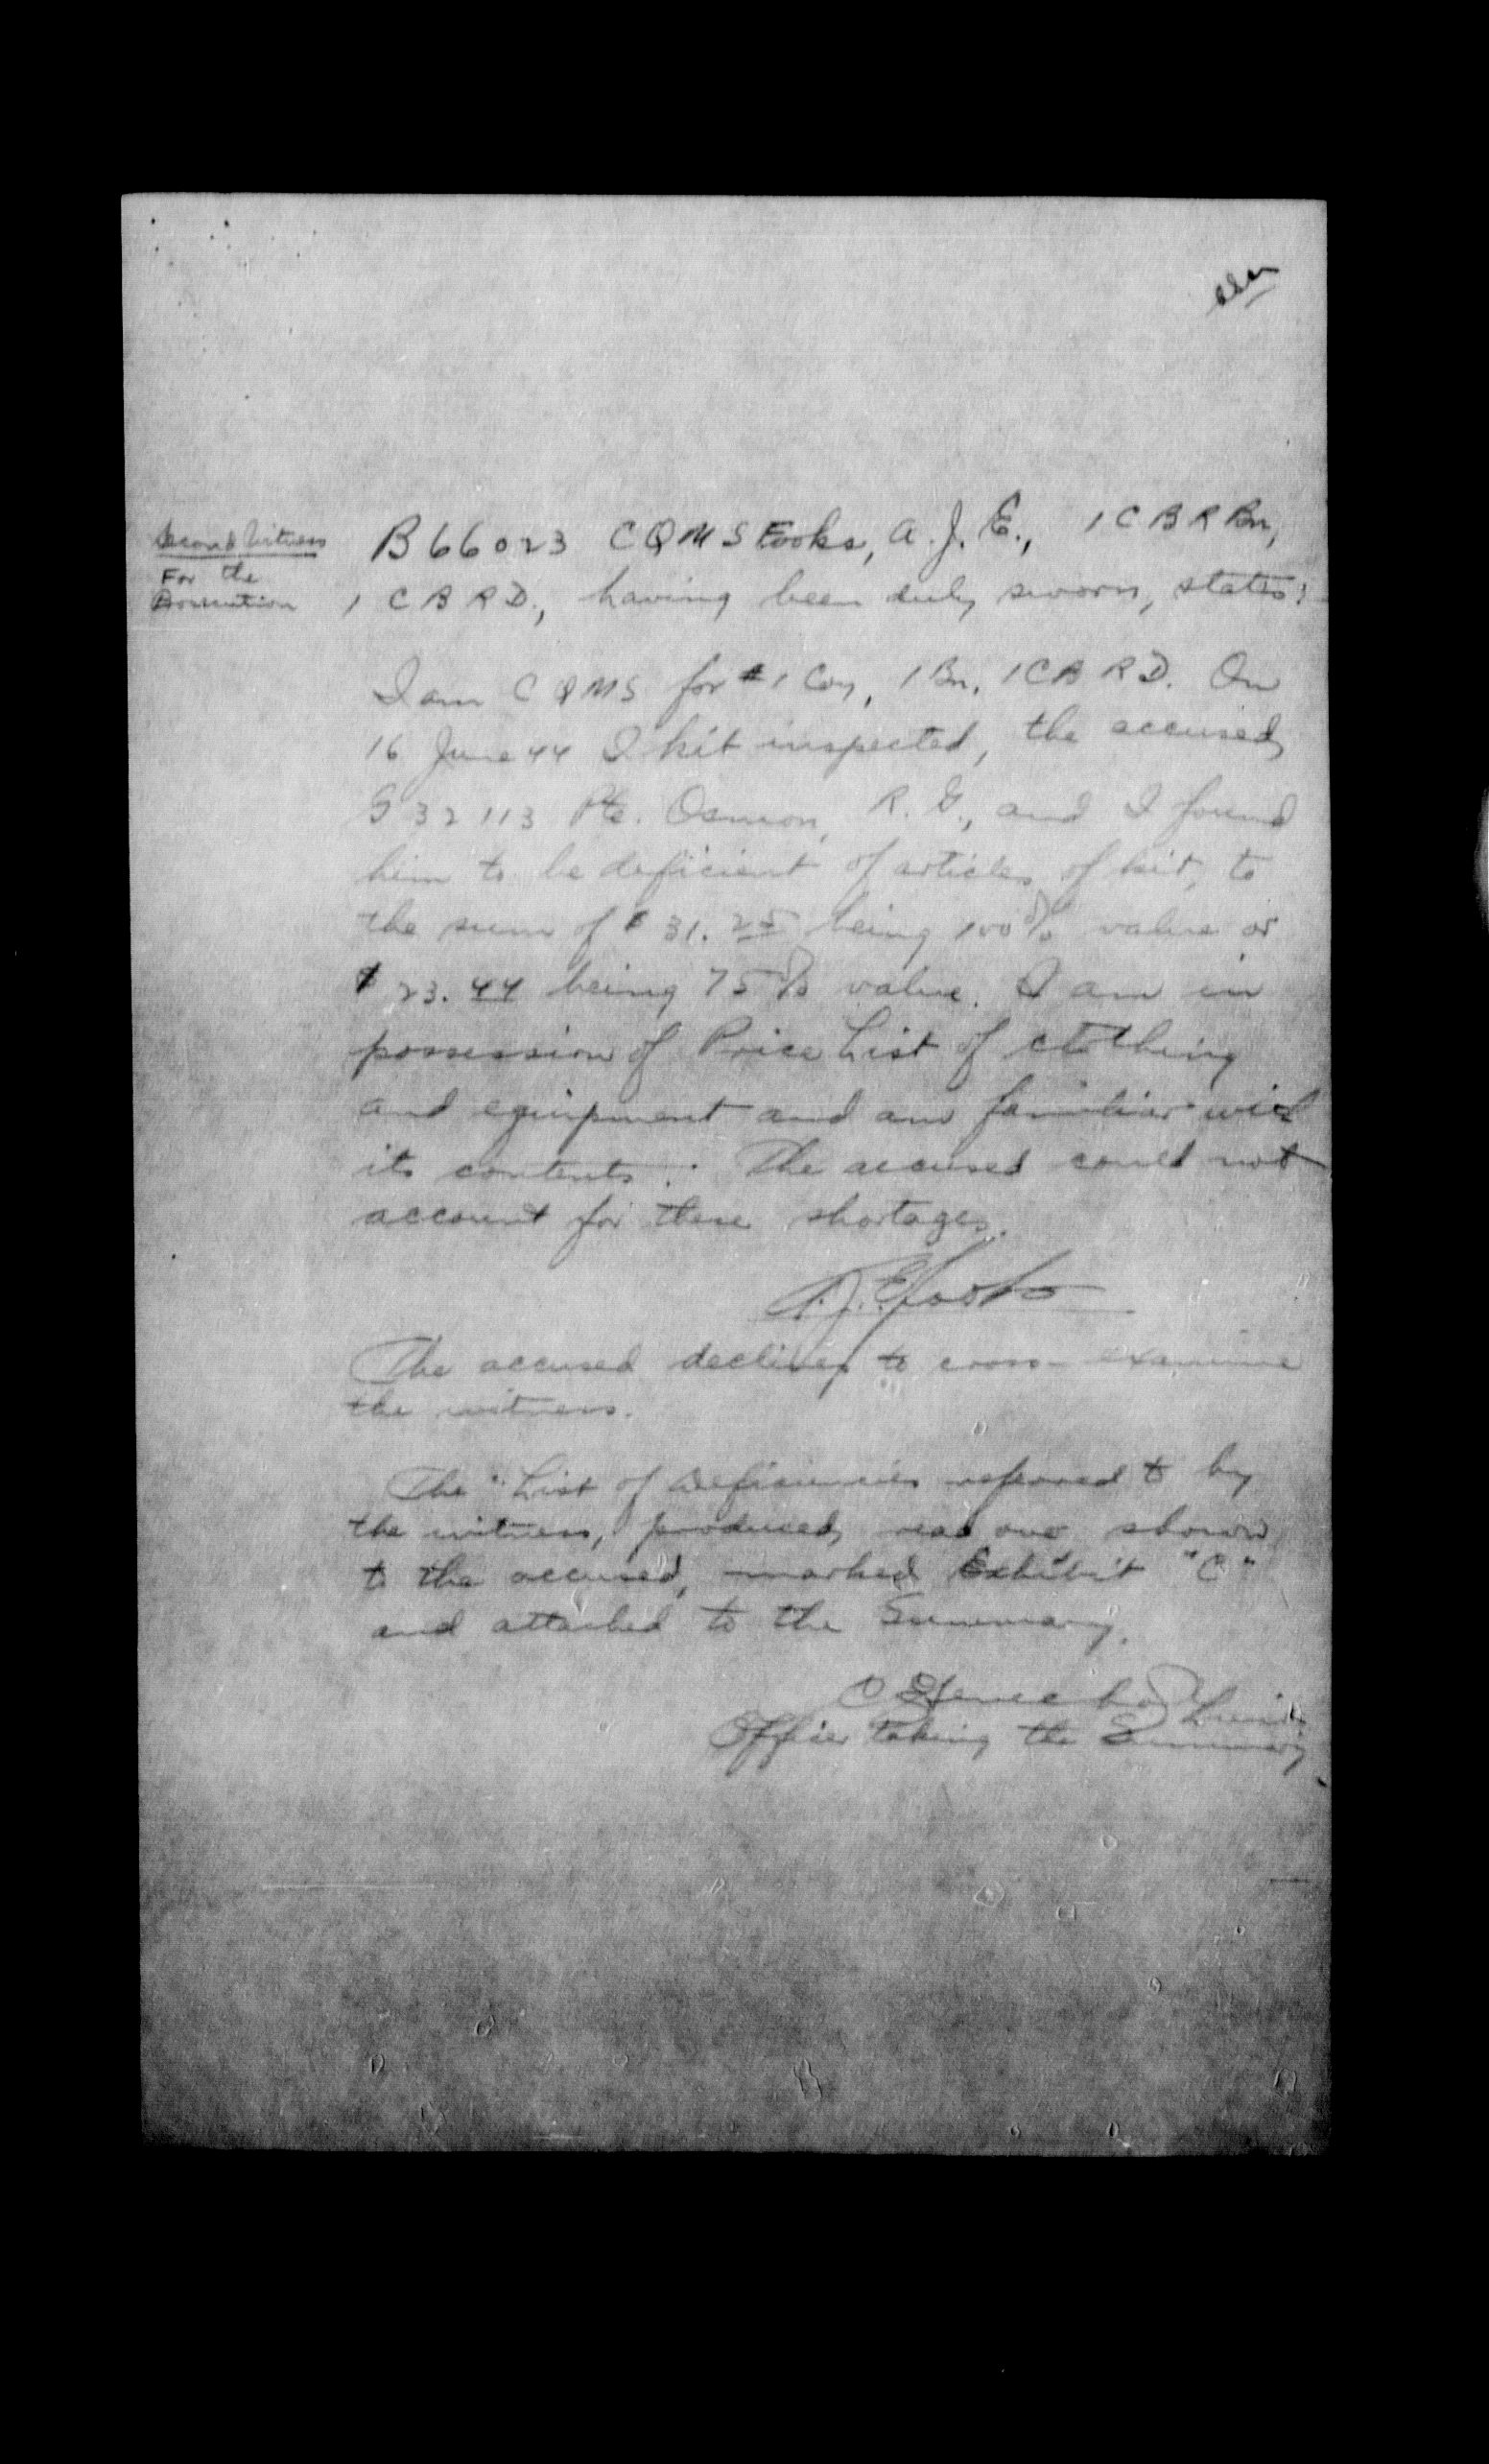 Second Witness
For the
Prosecution
B66023 CQMS Fooks, A. J. E., 1 C B R Bn,
1 C B R D., having been duly sworn, states:
I am CQMS for #1 Coy, 1 Bn, 1 C B R D. On
16 June 44 I kit inspected, the accused,
G 32113 Pte. Osmon, R. G., and I found
him to be deficient of articles of kit, to
the sum of $31.25 being 100% value or
$23.44 being 75% value. I am in
possession of Price List of clothing
and equipment and am familiar with
its contents. The accused could not
account for these shortages.
A. J. E. Fooks
The accused declines to cross-examine
the witness.
The "List of Deficiencies referred to by
the witness, produced, read over, shown
to the accused, marked Exhibit "C"
and attached to the Summary.
Officer taking the Summary